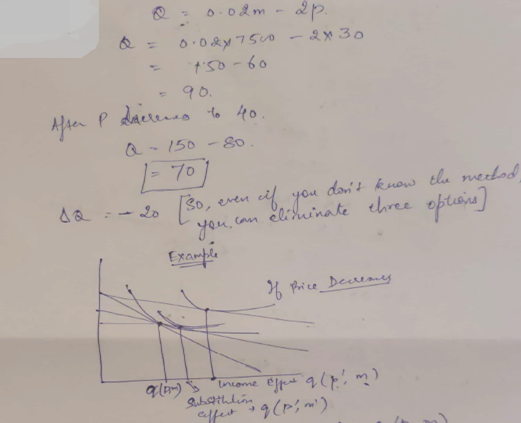 Q = 0.02m - 2p.
Q = 0.02x7500 - 2x30
= 150 - 60
= 90.
After P increases to 40.
Q = 150 - 80.
= 70
ΔQ = - 20 [So, even if you don't know the method, you can eliminate three options]
Example
If Price Decreases
Income effect q(p', m)
Substitution effect q(p', m')
q(p', m)